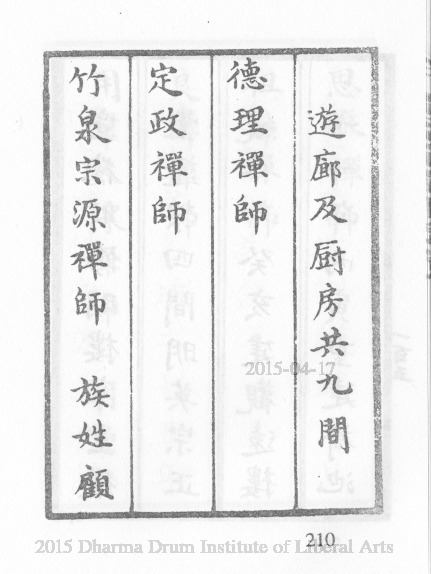 遊廊及厨房共九間
德理禪師
定政禪師
竹泉宗源禪師　族姓顧
2015-04-17
210
2015 Dharma Drum Institute of Liberal Arts